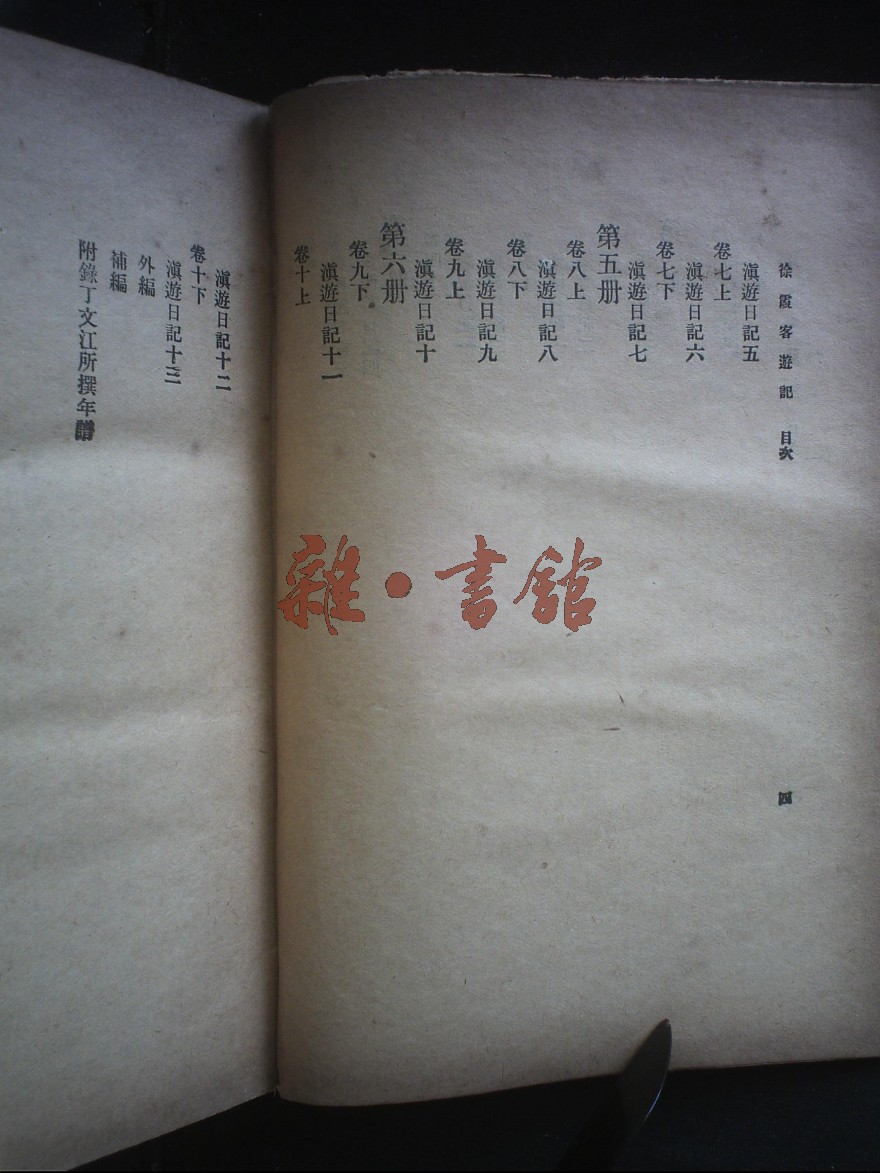 徐霞客遊記 目次
四
卷七上
滇遊日記五
卷七下
滇遊日記六
滇遊日記七
第五册
卷八上
滇遊日記八
卷八下
滇遊日記九
卷九上
滇遊日記十
第六册
卷九下
滇遊日記十一
卷十上
滇遊日記十二
卷十下
滇遊日記十三
外編
補編
附錄丁文江所撰年譜
雜·書館